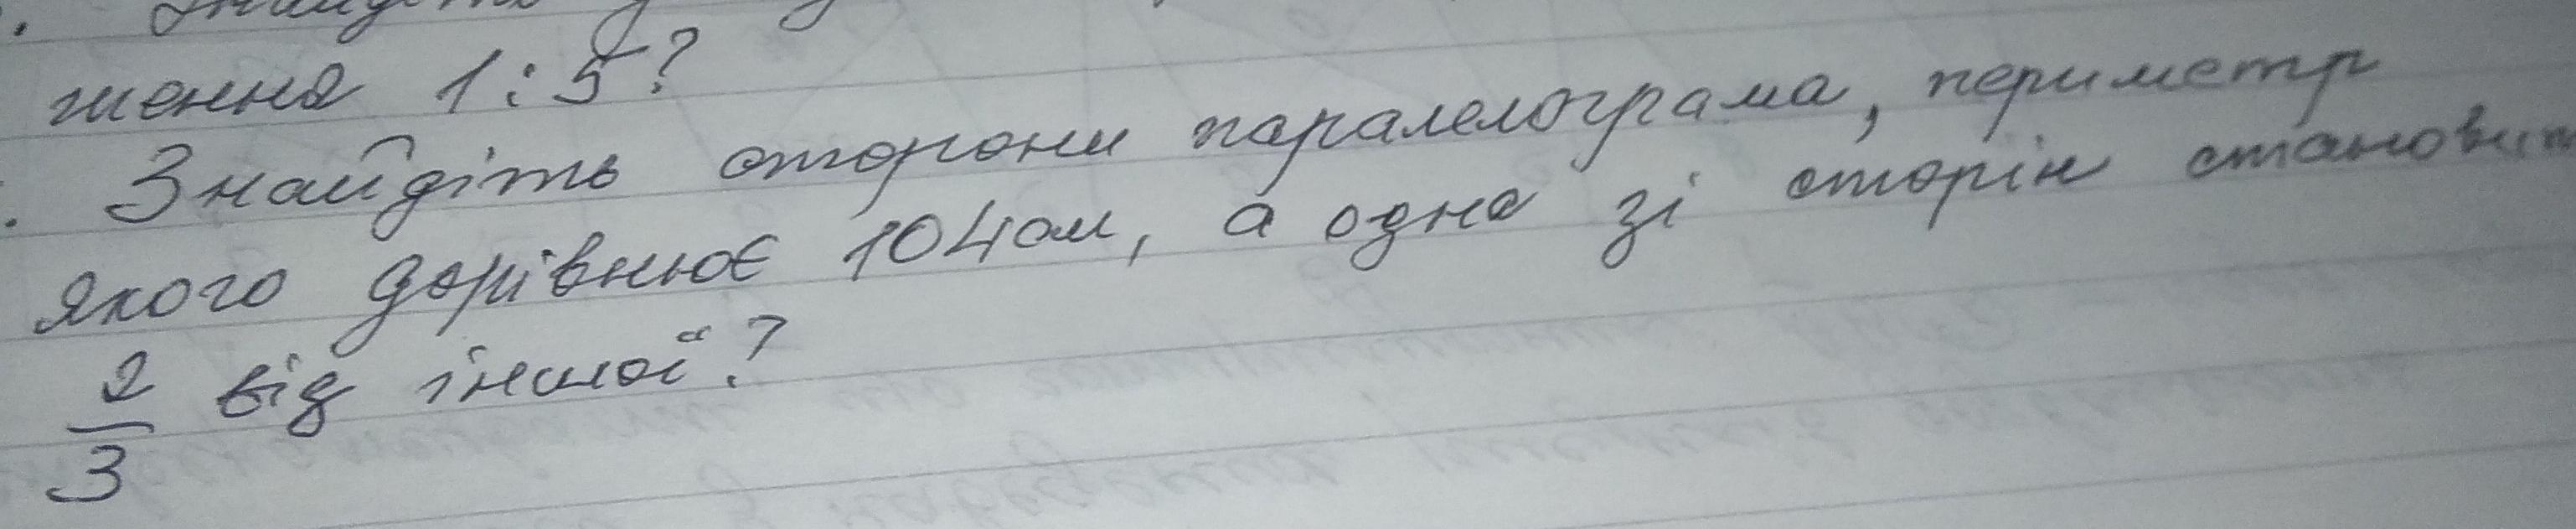 ження 1:5?
Знайдіть сторони паралелограма, периметр
якого дорівнює 104см, а одна зі сторін становить
2/3 від іншої?